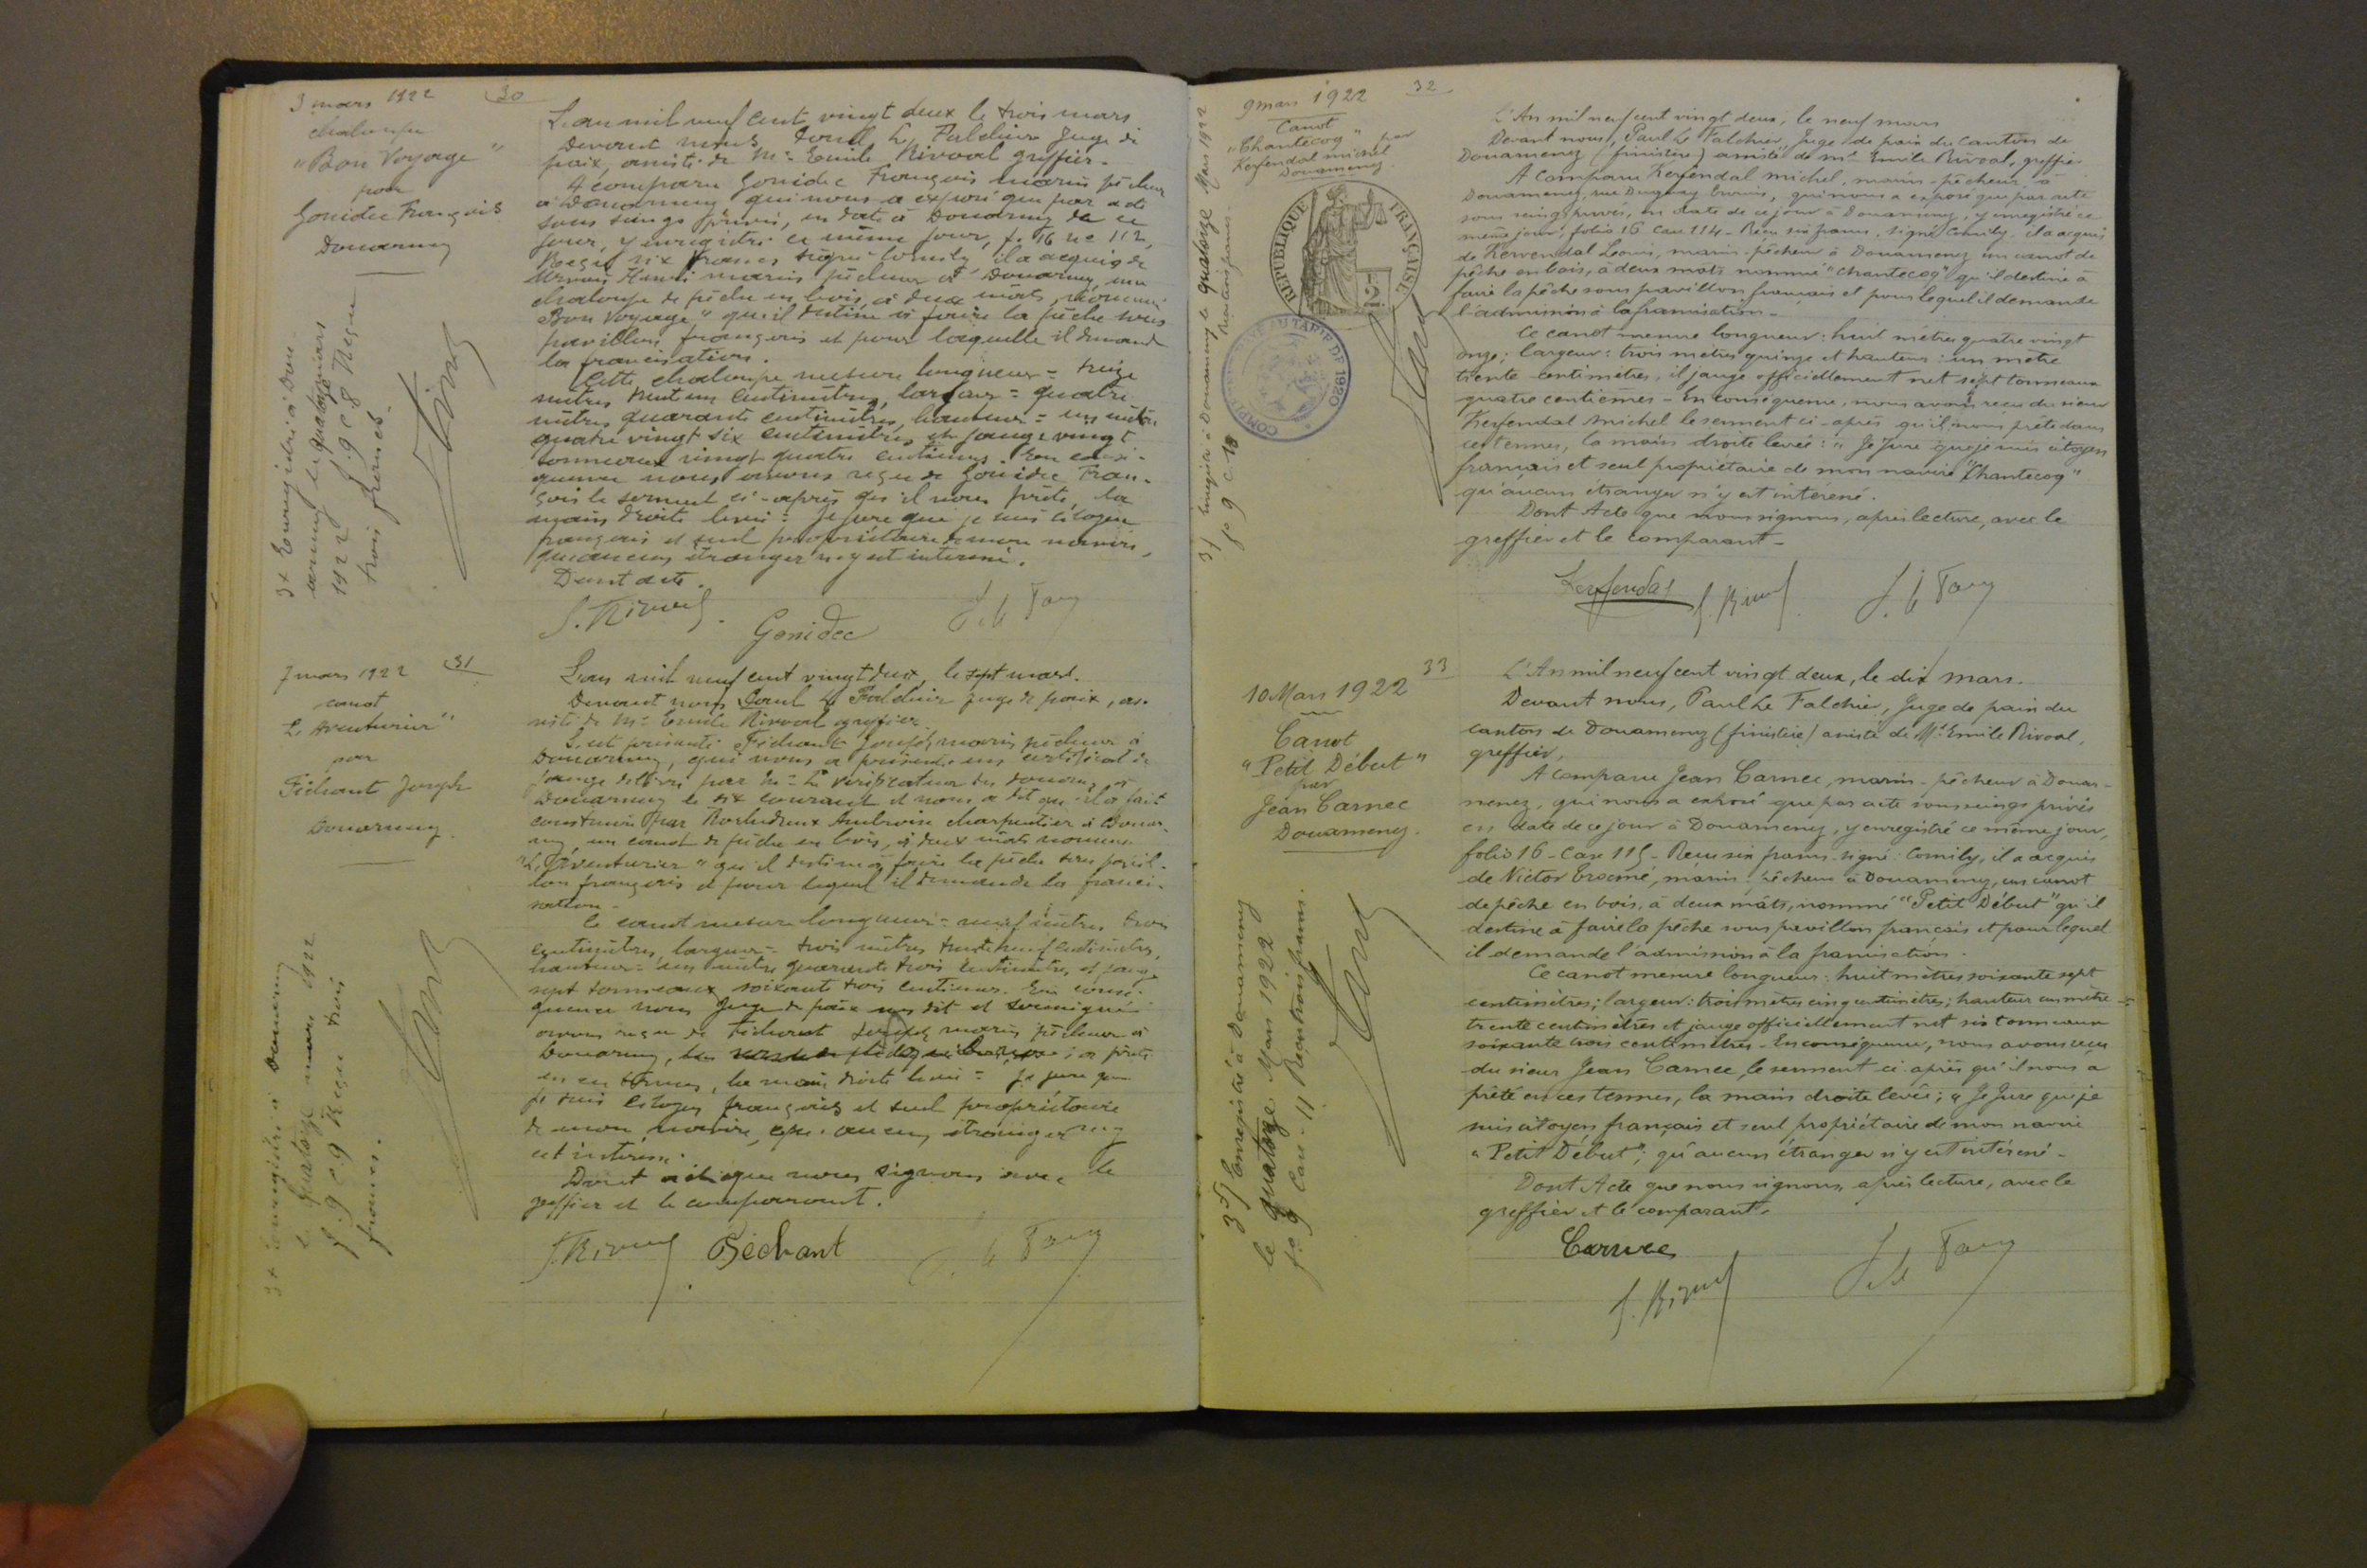 3 mars 1922 30
chaloupe
"Bon Voyage"
par
Gonidec François
Douarnenez
L'an mil neuf cent vingt deux le trois mars
Devant nous Paul Le Falchier Juge de
paix, assisté de Me Emile Rivoal greffier.
A comparu Gonidec François marin pêcheur
à Douarnenez qui nous a exposé que par acte
sous seings privés, en date à Douarnenez de ce
jour, y enregistré ce même jour, f. 16 no 112,
Reçu six francs signé Comily il a acquis de
Henri marin pêcheur à Douarnenez, une
chaloupe de pêche en bois, à deux mâts, nommée
Bon Voyage" qu'il destine à faire la pêche sous
pavillon français et pour laquelle il demande
la francisation.
Cette chaloupe mesure longueur = treize
mètres trente un centimètres, largeur = quatre
mètres quarante centimètres, hauteur = un mètre
quatre vingt six centimètres et jauge vingt
tonneaux vingt quatre centièmes. En consé-
quence nous avons reçu de Gonidec Fran-
çois le serment ci-après qu'il nous prête, la
main droite levée = Je jure que je suis citoyen
français et seul propriétaire de mon navire,
qu'aucun étranger n'y est intéressé.
Dont acte.
E. Rivoal Gonidec
3 f Enregistré à Dou-
arnenez le quatorze mars
1922 f. 9 c. 8 Reçu
trois francs.
7 mars 1922 31
canot
L'Aventurier"
par
Féchant Joseph
Douarnenez.
L'an mil neuf cent vingt deux, le sept mars.
Devant nous Paul Le Falchier juge de paix, as-
sisté de Me Emile Rivoal greffier.
S'est présenté Féchant Joseph marin pêcheur à
Douarnenez, qui nous a présenté un certificat de
jauge délivré par Mr le vérificateur des douanes, à
Douarnenez le six courant et nous a dit qu'il a fait
construire par Ambroise charpentier à Douar-
nez, un canot de pêche en bois, à deux mâts nommé
"L'Aventurier" qu'il destine à faire la pêche sous pavil-
lon français et pour lequel il demande la franci-
sation.
Ce canot mesure longueur = neuf mètres trois
centimètres, largeur = trois mètres trente neuf centimètres,
hauteur = un mètre quarante trois centimètres, et jauge
sept tonneaux soixante trois centièmes. En consé-
quence nous Juge de paix sus dit et soussigné
avons reçu de Féchant Joseph marin pêcheur à
Douarnenez, ; a prêté
en ces termes, la main droite levée = Je jure que
je suis citoyen français et seul propriétaire
de mon navire, qu'aucun étranger n'y
est intéressé.
Dont acte que nous signons avec le
greffier et le comparant.
E. Rivoal Féchant
3 f Enregistré à Douarnenez
le quatorze mars 1922
f. 9 c. 9 Reçu trois
francs.
9 mars 1922 32
Canot
"Chantecoq" par
Kerfendal michel
Douarnenez.
REPUBLIQUE FRANÇAISE
AU TARIF DE 1920
3 f Enregistré à Douarnenez le quatorze Mars 1922
fo 9 c. 10 Reçu trois francs.
L'An mil neuf cent vingt deux, le neuf mars
Devant nous, Paul Le Falchier, Juge de paix du Canton de
Douarnenez (finistère) assisté de Me Emile Rivoal, greffier
A comparu Kerfendal michel, marin-pêcheur, à
Douarnenez, rue Duguay Trouin, qui nous a exposé que par acte
sous seings privés, en date de ce jour à Douarnenez, y enregistré ce
même jour, folio 16 case 114 - Reçu six francs, signé Comily, il a acquis
de Kervendal Louis, marin-pêcheur à Douarnenez un canot de
pêche en bois, à deux mâts nommé "Chantecoq" qu'il destine à
faire la pêche sous pavillon français et pour lequel il demande
l'admission à la francisation.
Ce canot mesure longueur: huit mètres quatre vingt
onze; largeur: trois mètres quinze et hauteur: un mètre
trente centimètres, il jauge officiellement net sept tonneaux
quatre centièmes - En conséquence, nous avons reçu du sieur
Kerfendal Michel le serment ci-après qu'il nous prête dans
ces termes, la main droite levée: "Je Jure que je suis citoyen
français et seul propriétaire de mon navire "Chantecoq"
qu'aucun étranger n'y est intéressé.
Dont Acte que nous signons, après lecture, avec le
greffier et le comparant -
Kerfendal E. Rivoal
10 Mars 1922 33
Canot
"Petit Début"
par
Jean Carnec
Douarnenez.
3 f Enregistré à Douarnenez
le quatorze Mars 1922
fo 9 Case 11 Reçu trois francs.
L'An mil neuf cent vingt deux, le dix mars.
Devant nous, Paul Le Falchier, Juge de paix du
canton de Douarnenez (finistère) assisté de Me Emile Rivoal,
greffier,
A comparu Jean Carnec, marin-pêcheur à Douar-
nenez, qui nous a exposé que par acte sous seings privés
en date de ce jour à Douarnenez, y enregistré ce même jour,
folio 16 - Case 115 - Reçu six francs - signé: Comily, il a acquis
de Victor , marin pêcheur à Douarnenez, un canot
de pêche en bois, à deux mâts, nommé "Petit Début" qu'il
destine à faire la pêche sous pavillon français et pour lequel
il demande l'admission à la francisation.
Ce canot mesure longueur: huit mètres soixante sept
centimètres; largeur: trois mètres cinq centimètres; hauteur un mètre
trente centimètres et jauge officiellement net six tonneaux
soixante trois centimètres - En conséquence, nous avons reçu
du sieur Jean Carnec, le serment ci-après qu'il nous a
prêté en ces termes, la main droite levée; "Je Jure que je
suis citoyen français et seul propriétaire de mon navire
"Petit Début"; qu'aucun étranger n'y est intéressé -
Dont Acte que nous signons, après lecture, avec le
greffier et le comparant.
Carnec
E. Rivoal